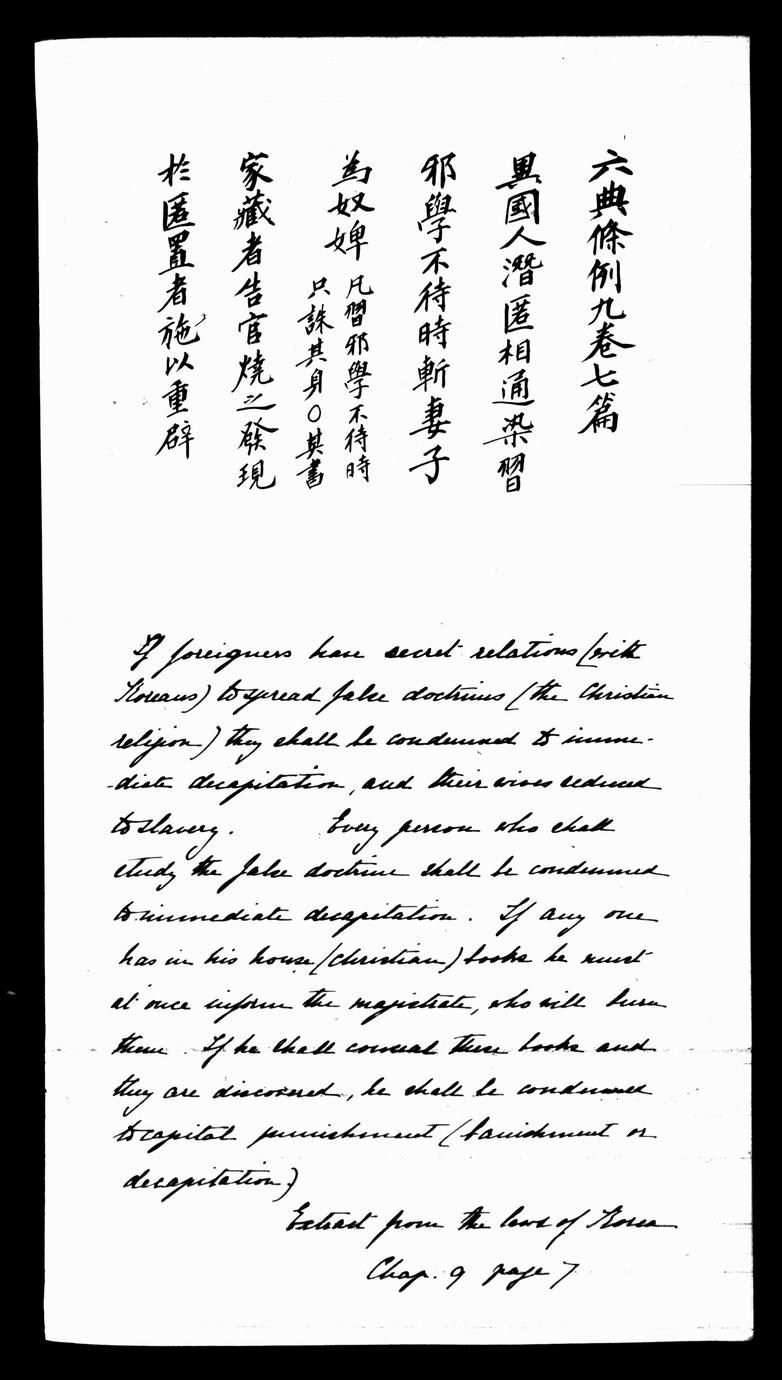 六典條例九卷七篇
異國人潛匿相通染習
邪學不待時斬妻子
為奴婢
凡習邪學不待時
只誅其身〇其書
家藏者告官燒之發現
於匿置者施以重辟
If foreigners have secret relations (with
Koreans) to spread false doctrines (the Christian
religion) they shall be condemned to imme-
-diate decapitation, and their wives reduced
to slavery. Every person who shall
study the false doctrine shall be condemned
to immediate decapitation. If any one
has in his house (christian) books he must
at once inform the magistrate, who will burn
them. If he shall conceal these books and
they are discovered, he shall be condemned
to capital punishment (banishment or
decapitation)
Extract from the laws of Korea
Chap. 9 page 7